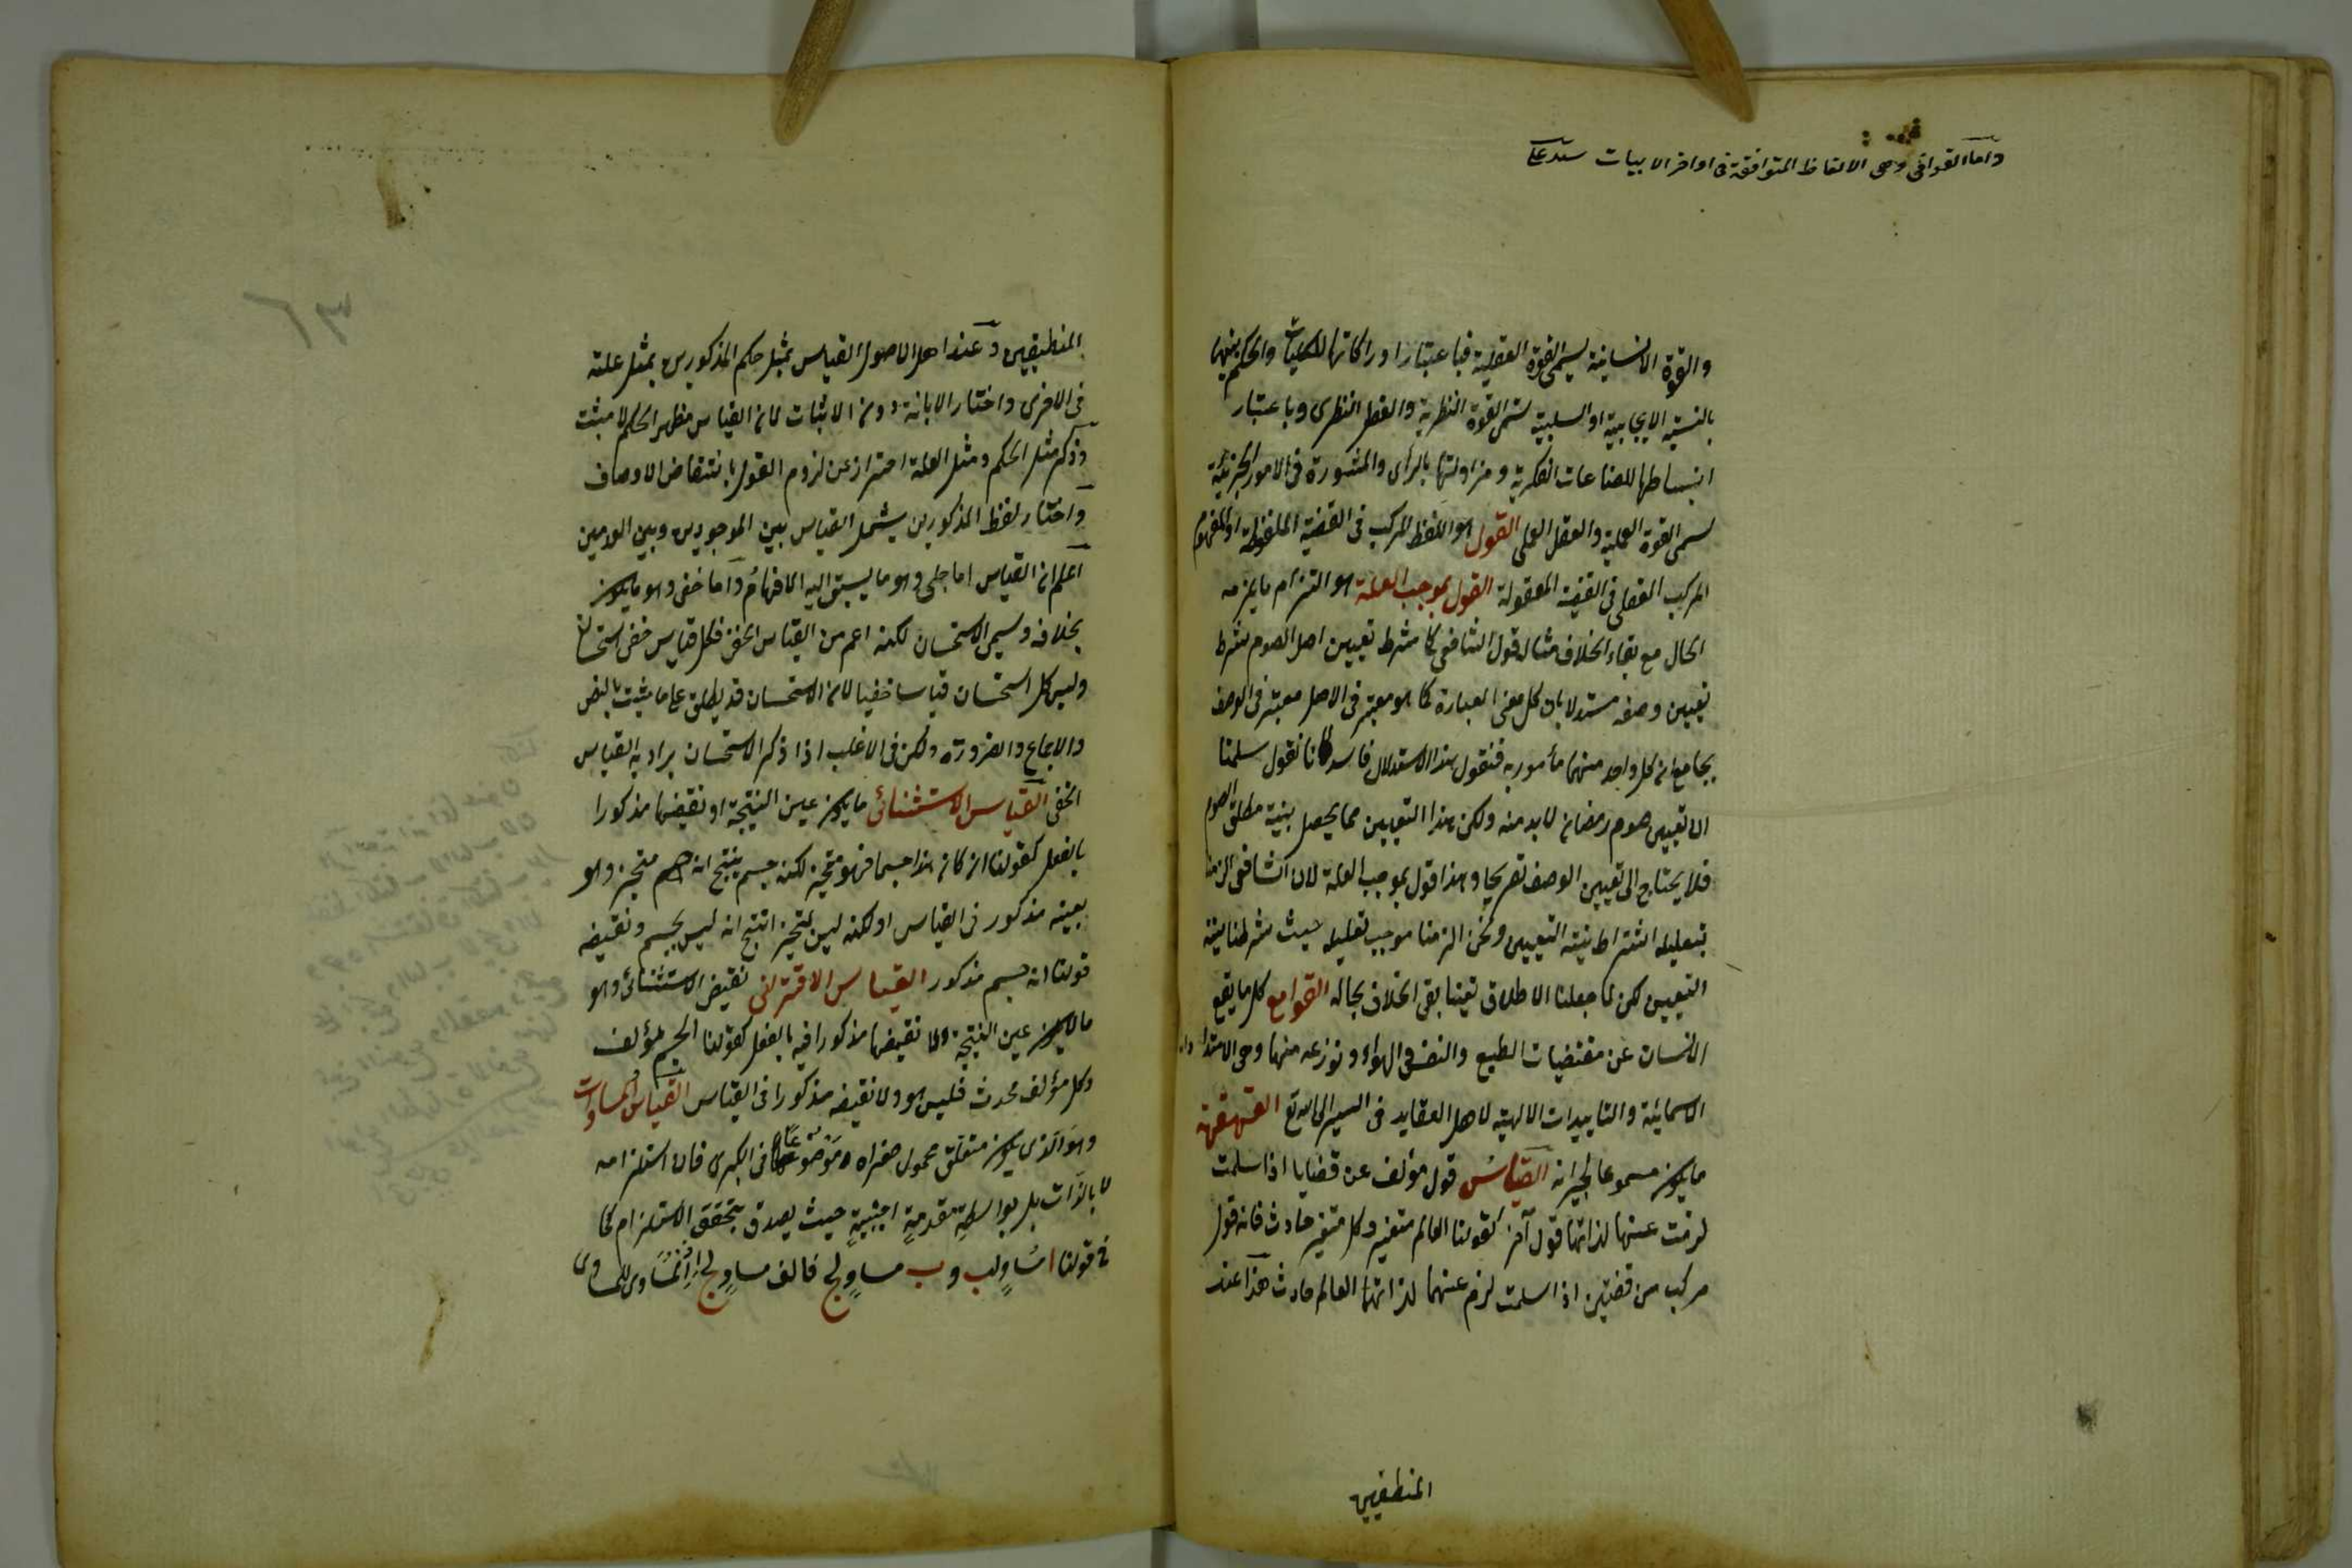 واما القوافى وهى الالفاظ المتوافقة فى اواخر الابيات
والقوة الانسانية يسمى القوة العقلية فباعتبار ادراكاتها للكليات والحكم بينها
بالنسبة الايجابية او السلبية تسمى القوة النظرية والعقل النظرى وباعتبار
انبساطها للصناعات الفكرية ومزاولتها بالرأى والمشورة فى الامور الجزئية
يسمى القوة العملية والعقل العملى القول هو اللفظ المركب فى القضية الملفوظة او المفهوم
المركب العقلى فى القضية المعقولة القول بموجب العلة هو التزام ما يلزمه
الحال مع بقاء الخلاف مثاله قول الشافعى كما شرط تعيين اصل الصوم شرط
تعيين وصفه مستدلا بان كل معنى العبارة كما هو معتبر فى الاصل معتبر فى الوصف
بجامع ان كل واحد منهما مأمور به فنقول هذا الاستدلال فاسد لانا نقول سلمنا
ان تعيين صوم رمضان لا بد منه ولكن هذا التعيين مما يحصل بنية مطلق الصوم
فلا يحتاج الى تعيين الوصف تصريحا وهذا قول بموجب العلة لان الشافعى الزمنا
بتعليله اشتراط نية التعيين ونحن الزمنا موجب تعليله حيث شرطنا نية
التعيين لكن لما جعلنا الاطلاق تعينا بقى الخلاف بحاله القوامع كل ما يقمع
الانسان عن مقتضيات الطبع والنفس والهواء ونوزعه منها وهى الامتدادات
الاسمائية والتاييدات الالهية لاهل العقايد فى السير الى الله تع القهقهة
ما يكون مسموعا لجيرانه القياس قول مؤلف عن قضايا اذا سلمت
لزمت عنها لذاتها قول آخر كقولنا العالم متغير وكل متغير حادث فانه قول
مركب من قضيتين اذا سلمت لزم عنهما لذاتهما العالم حادث هذا عند
المنطقيين
المنطيقيين وعند اهل الاصول القياس بمثل حكم المذكورين بمثل علته
فى الاخرى واختار الابانة دون الاثبات لان القياس مظهر الحكم لا مثبت
وذكر مثل الحكم ومثل العلة احتراز عن لزوم القول بانتقاض الاوصاف
واختار لفظ المذكورين يشمل القياس بين الموجودين وبين المعدومين
اعلم ان القياس اما جلى وهو ما يسبق اليه الافهام واما خفى وهو ما يكون
بخلافه ويسمى الاستحسان لكنه اعم من القياس الخفى فكل قياس خفى استحسان
وليس كل استحسان قياسا خفيا لان الاستحسان قد يطلق على ما يثبت بالنص
والاجماع والضرورة ولكن فى الاغلب اذا ذكر الاستحسان يراد به القياس
الخفى القياس الاستثنائى ما يكون عين النتيجة او نقيضها مذكورا
بالفعل كقولنا ان كان هذا جسما فهو متحيز لكنه جسم ينتج انه جسم متحيز وهو
بعينه مذكور فى القياس او لكنه ليس بمتحيز انتج انه ليس بجسم ونقيضه
قولنا انه جسم مذكور القياس الاقترانى نقيض الاستثنائى وهو
ما لا يكون عين النتيجة ولا نقيضها مذكورا فيه بالفعل كقولنا الجسم مؤلف
وكل مؤلف محدث فليس هو ولا نقيضه مذكورا فى القياس القياس المساوات
وهو الذى يكون متعلق محمول صغراه موضوعا فى الكبرى فان استلزامه
لا بالذات بل بواسطة مقدمة اجنبية حيث يصدق بتحقق الاستلزام كما
فى قولنا ا مساو لب وب مساو لج فالف مساو لج اذ المساوى للمساوى